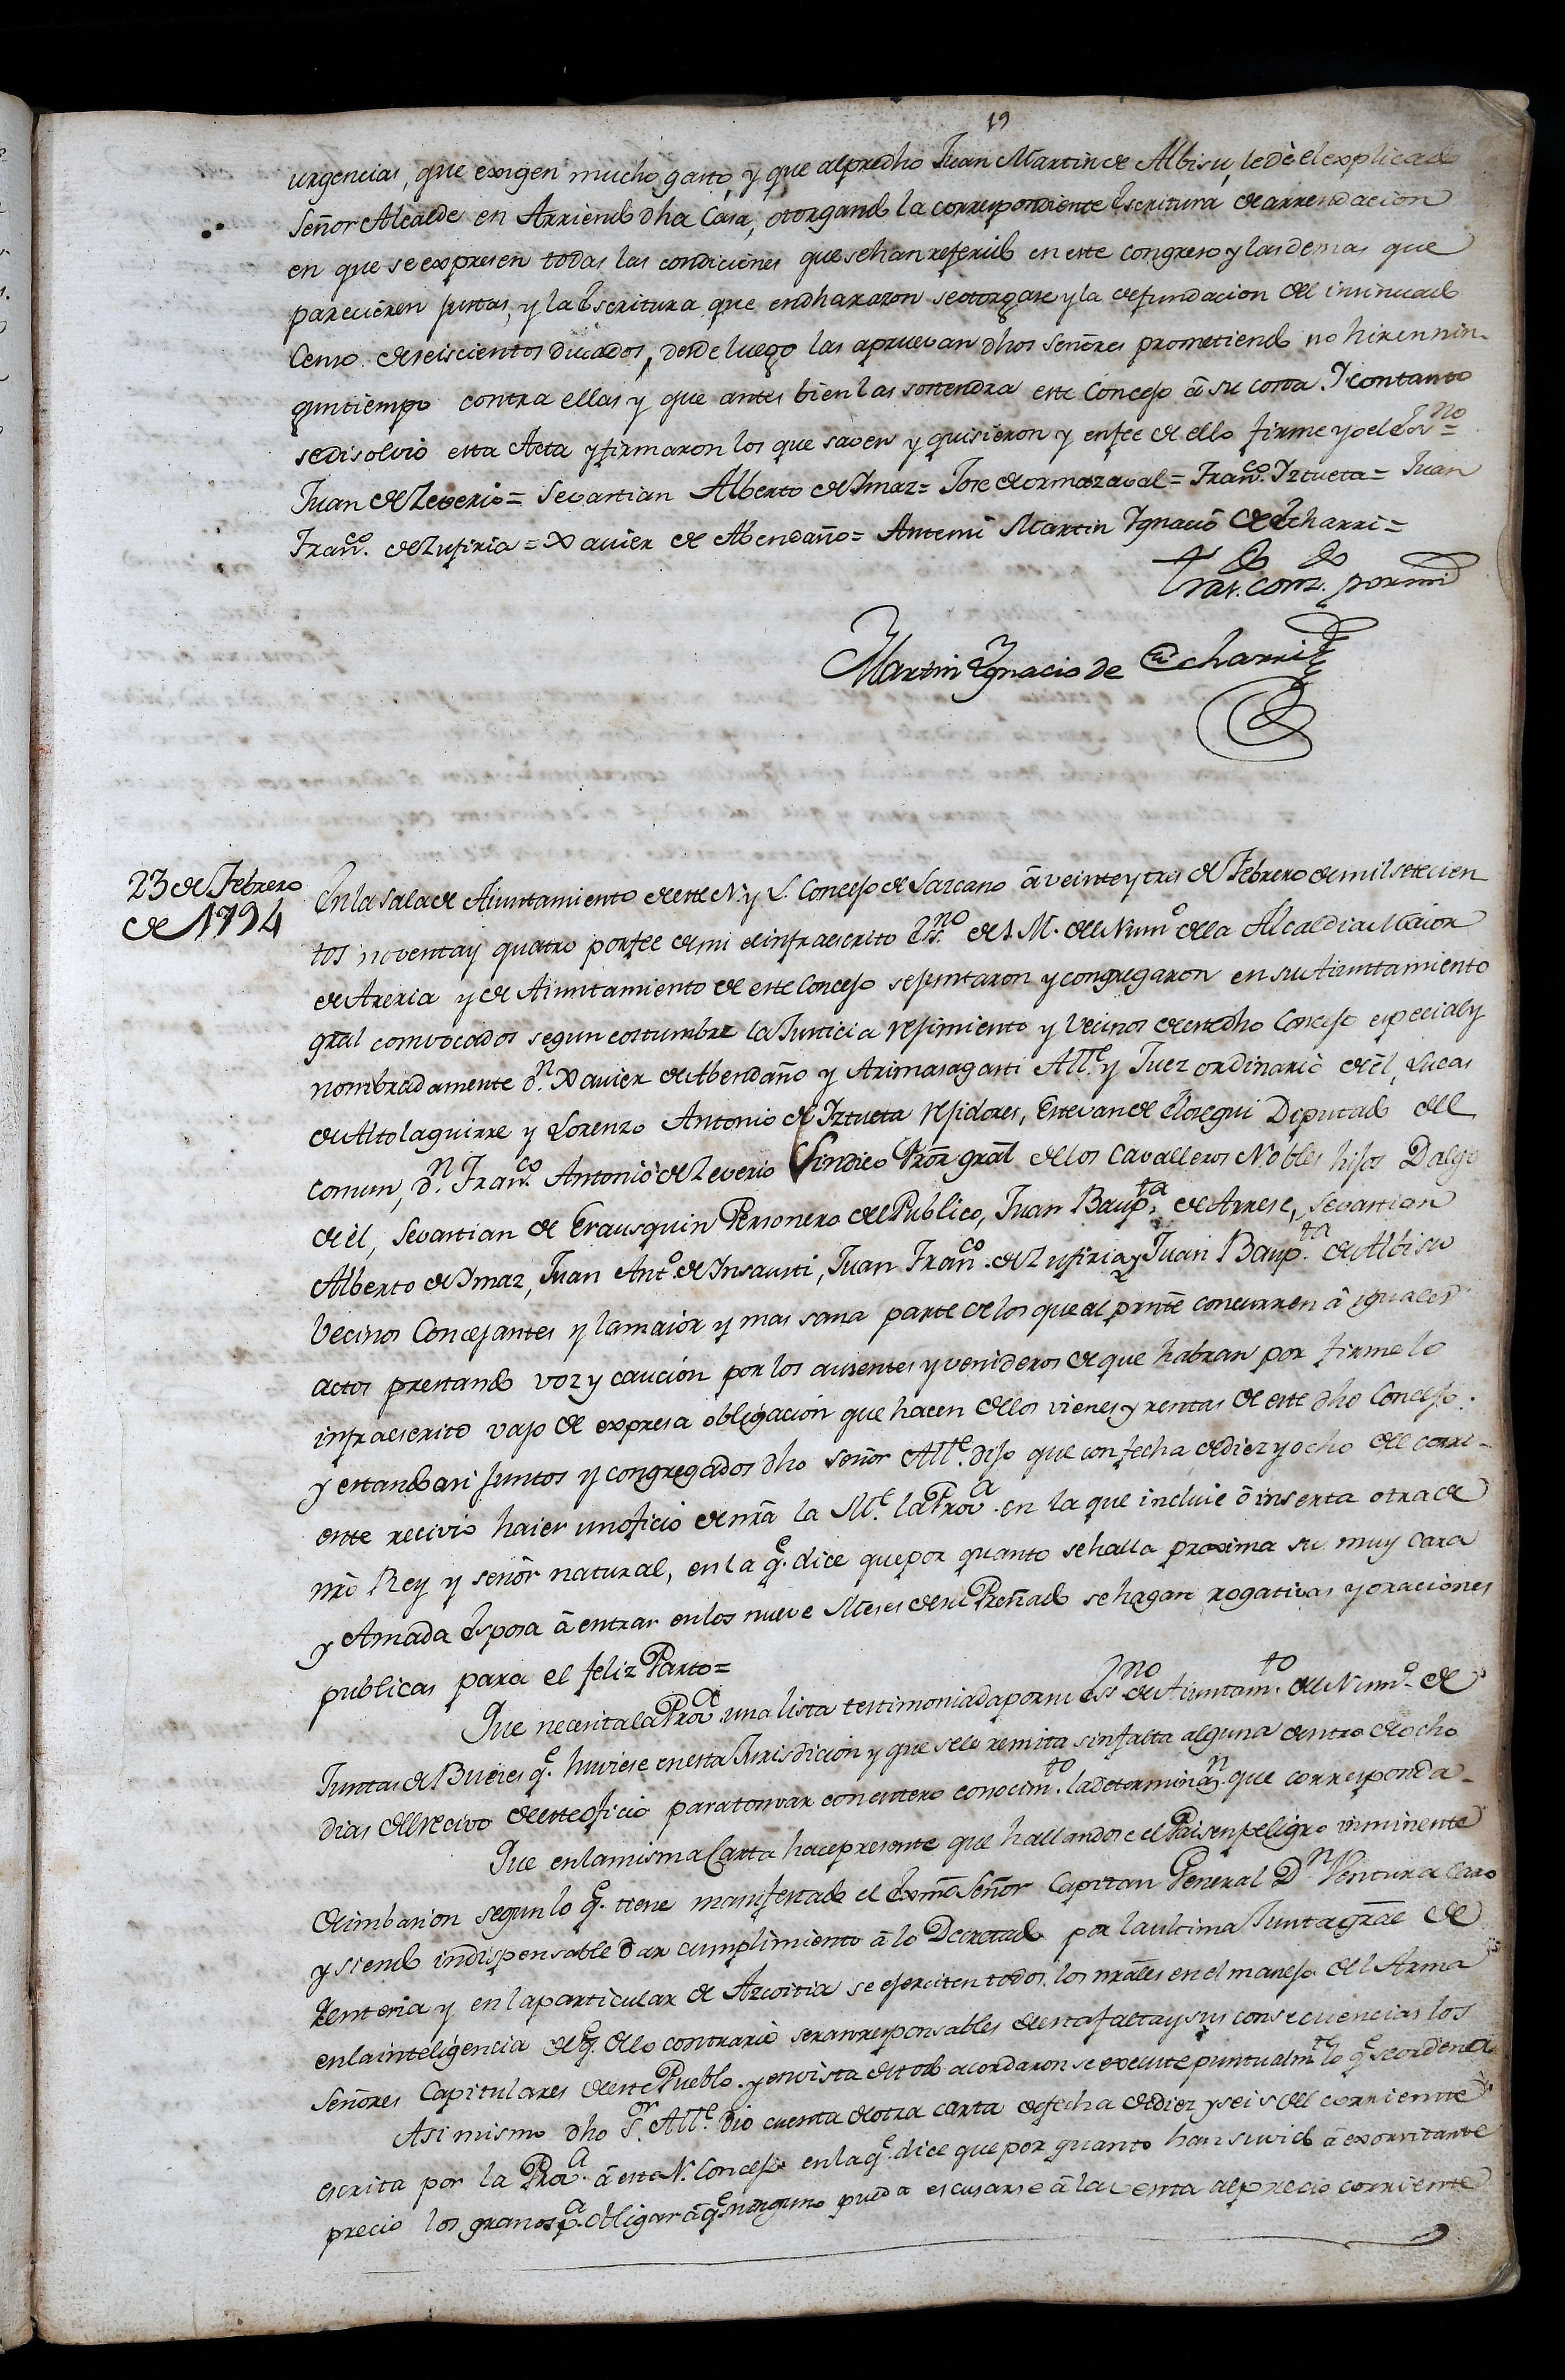 19
urgencias, que exigen mucho gasto, y que alpredho Juan Martin de Albisu, le dè el explicado
Señor Alcalde en Arriendo dha Casa, otorgando la correspondiente Escritura de arrendacion
en que se expresen todas las condiciones que se han referido en este congreso y las demas que
parecieren justas, y la Escritura que en dha razon se otorgare y la de fundacion del insinuado
Censo de seiscientos ducados, desde luego las apruevan dhos Señores prometiendo no hir en nin-
gun tiempo contra ellas y que antes bien las sostendra este Concejo â su costa. Y con tanto
se disolviò esta Acta y firmaron los que saven y quisieron y en fee de ello firme yo el Esno=
Juan de Zeverio= Sevastian Alberto de Ymaz= Jose de ormazaval= Franco. Yztueta= Juan
Franco. de Zufiria= Xavier de Abendaño= Antemi Martin Ygnacio de Echarri=
por mi
Martin Ygnacio de Echarri
23 de Febrero
de 1794
En la sala de Aiuntamiento de este N. y L. Concejo de Lazcano â veinte y tres de Febrero de mil setecien
tos noventa y quatro por fee de mi el infraescrito Esno. de S. M. del Numo de la Alcaldia Maior
de Areria y de Aiuntamiento de este Concejo se juntaron y congregaron en su Aiuntamiento
gral convocados segun costumbre la Justicia rejimiento y Vecinos de este dho Concejo especial y
nombradamente Dn. Xavier de Abendaño y Arimasagasti Alle. y Juez ordinario de èl, Lucas
de Altolaguirre y Lorenzo Antonio de Yztueta rejidores, Estevan de Elosegui Diputado del
comun, Dn. Franco. Antonio de Zeverio Sindico Prōr grāl de los Cavalleros Nobles hijos Dalgo
de èl, Sevastian de Erausquin Personero del Publico, Juan Baupta. de Arrese, Sevastian
Alberto de Ymaz, Juan Anto. de Insausti, Juan Franco. de Zufiria y Juan Baupta. de Albisu
Vecinos Concejantes y la maior y mas sana parte de los que al prnte concurren â iguales
actos prestando voz y caucion por los ausentes y venideros de que habran por firme lo
infraescrito vajo de expresa obligacion que hacen de los vienes y rentas de este dho Concejo.
y estando asi juntos y congregados dho Señor Alle. dijo que con fecha de diez y ocho del corri-
ente recivio haier un oficio de nrā la M. Le. Prova. en la que incluie ô inserta otra de
nrō Rey y señor natural, en la qe. dice que por quanto se halla proxima su muy cara
y Amada Esposa â entrar en los nueve Meses de su Preñado se hagan rogativas y oraciones
publicas para el feliz Parto=
Que necesita la Prova. una lista testimoniada por su Essno de Aiuntamto. del Numo. de
Juntas de Bueies qe. huviese en esta Jurisdicion y que se le remita sin falta alguna dentro de ocho
dias del recivo de este oficio para tomar con entero conocimto. la determinan. que corresponda.
Que en la misma Carta hace presente que hallandose el Pais en peligro inminente
de imbasion segun lo qe. tiene manifestado el Exmo Señor Capitan General Dn Ventura Caro
y siendo indispensable dar cumplimiento â lo Decretado por la ultima Junta grāl de
Renteria y en la particular de Azcoitia se ejerciten todos los nrāles en el manejo del Arma
en la inteligencia de qe. de lo contrario seran responsables de esta falta y sus consecuencias los
Señores Capitulares de este Pueblo. y en vista de todo acordaron se execute puntualmte lo qe se ordena
Asi mismo dho Sor. Alle. dio cuenta de otra carta de fecha de diez y seis del corriente
escrita por la Prova. â este N. Concejo en la qe. dice que por quanto han suvido â exorvitante
precio los granos pa. obligar â qe. ninguno pueda escusarse â la venta al precio corriente